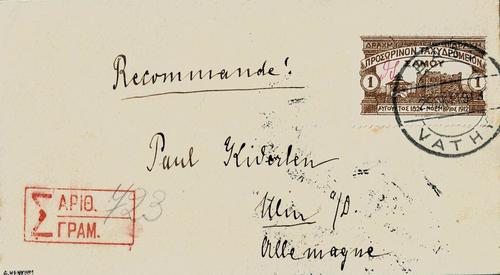 ΔΡΑΧΜΗ
ΠΡΟΣΩΡΙΝΟΝ ΤΑΧΥΔΡΟΜΕΙΟΝ
ΣΑΜΟΥ
1 1
ΑΥΓΟΥΣΤΟΣ 1824-ΝΟΕΜΒΡΙΟΣ 1912
VATHY
Recommandé!
Paul Kiderlen
Ulm a/D.
Allemagne
Σ ΑΡΙΘ. 423
ΓΡΑΜ.